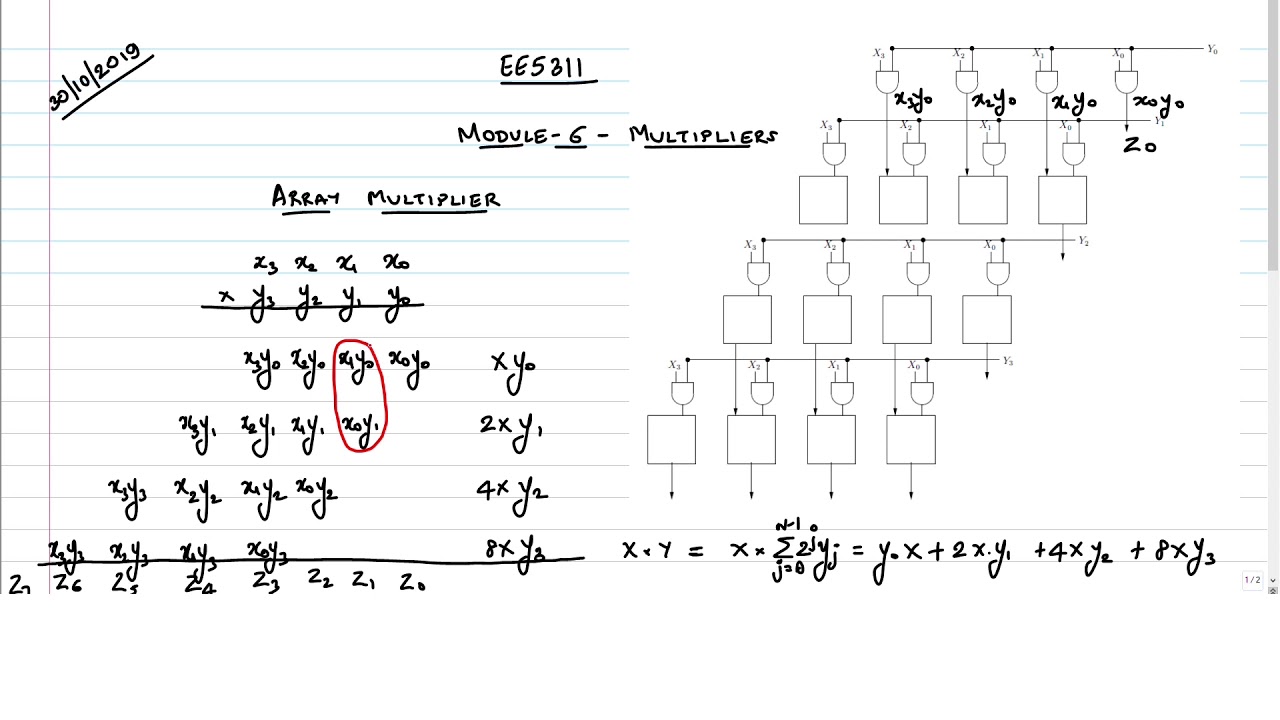 30/10/2019
EE5311
MODULE-6 - MULTIPLIERS
ARRAY MULTIPLIER
x3 x2 x1 x0
x y3 y2 y1 y0
x3y0 x2y0 x1y0 x0y0 xy0
x3y1 x2y1 x1y1 x0y1 2xy1
x3y3 x2y2 x1y2 x0y2 4xy2
x3y3 x2y3 x1y3 x0y3 8xy3
Z7 Z6 Z5 Z4 Z3 Z2 Z1 Z0
X3 X2 X1 X0 Y0
x3y0 x2y0 x1y0 x0y0
X3 X2 X1 X0 Y1
Z0
X3 X2 X1 X0 Y2
X3 X2 X1 X0 Y3
N-1
X * Y = X * Σ 2^j yj = y0 X + 2X.y1 + 4Xy2 + 8Xy3
j=0
1/2